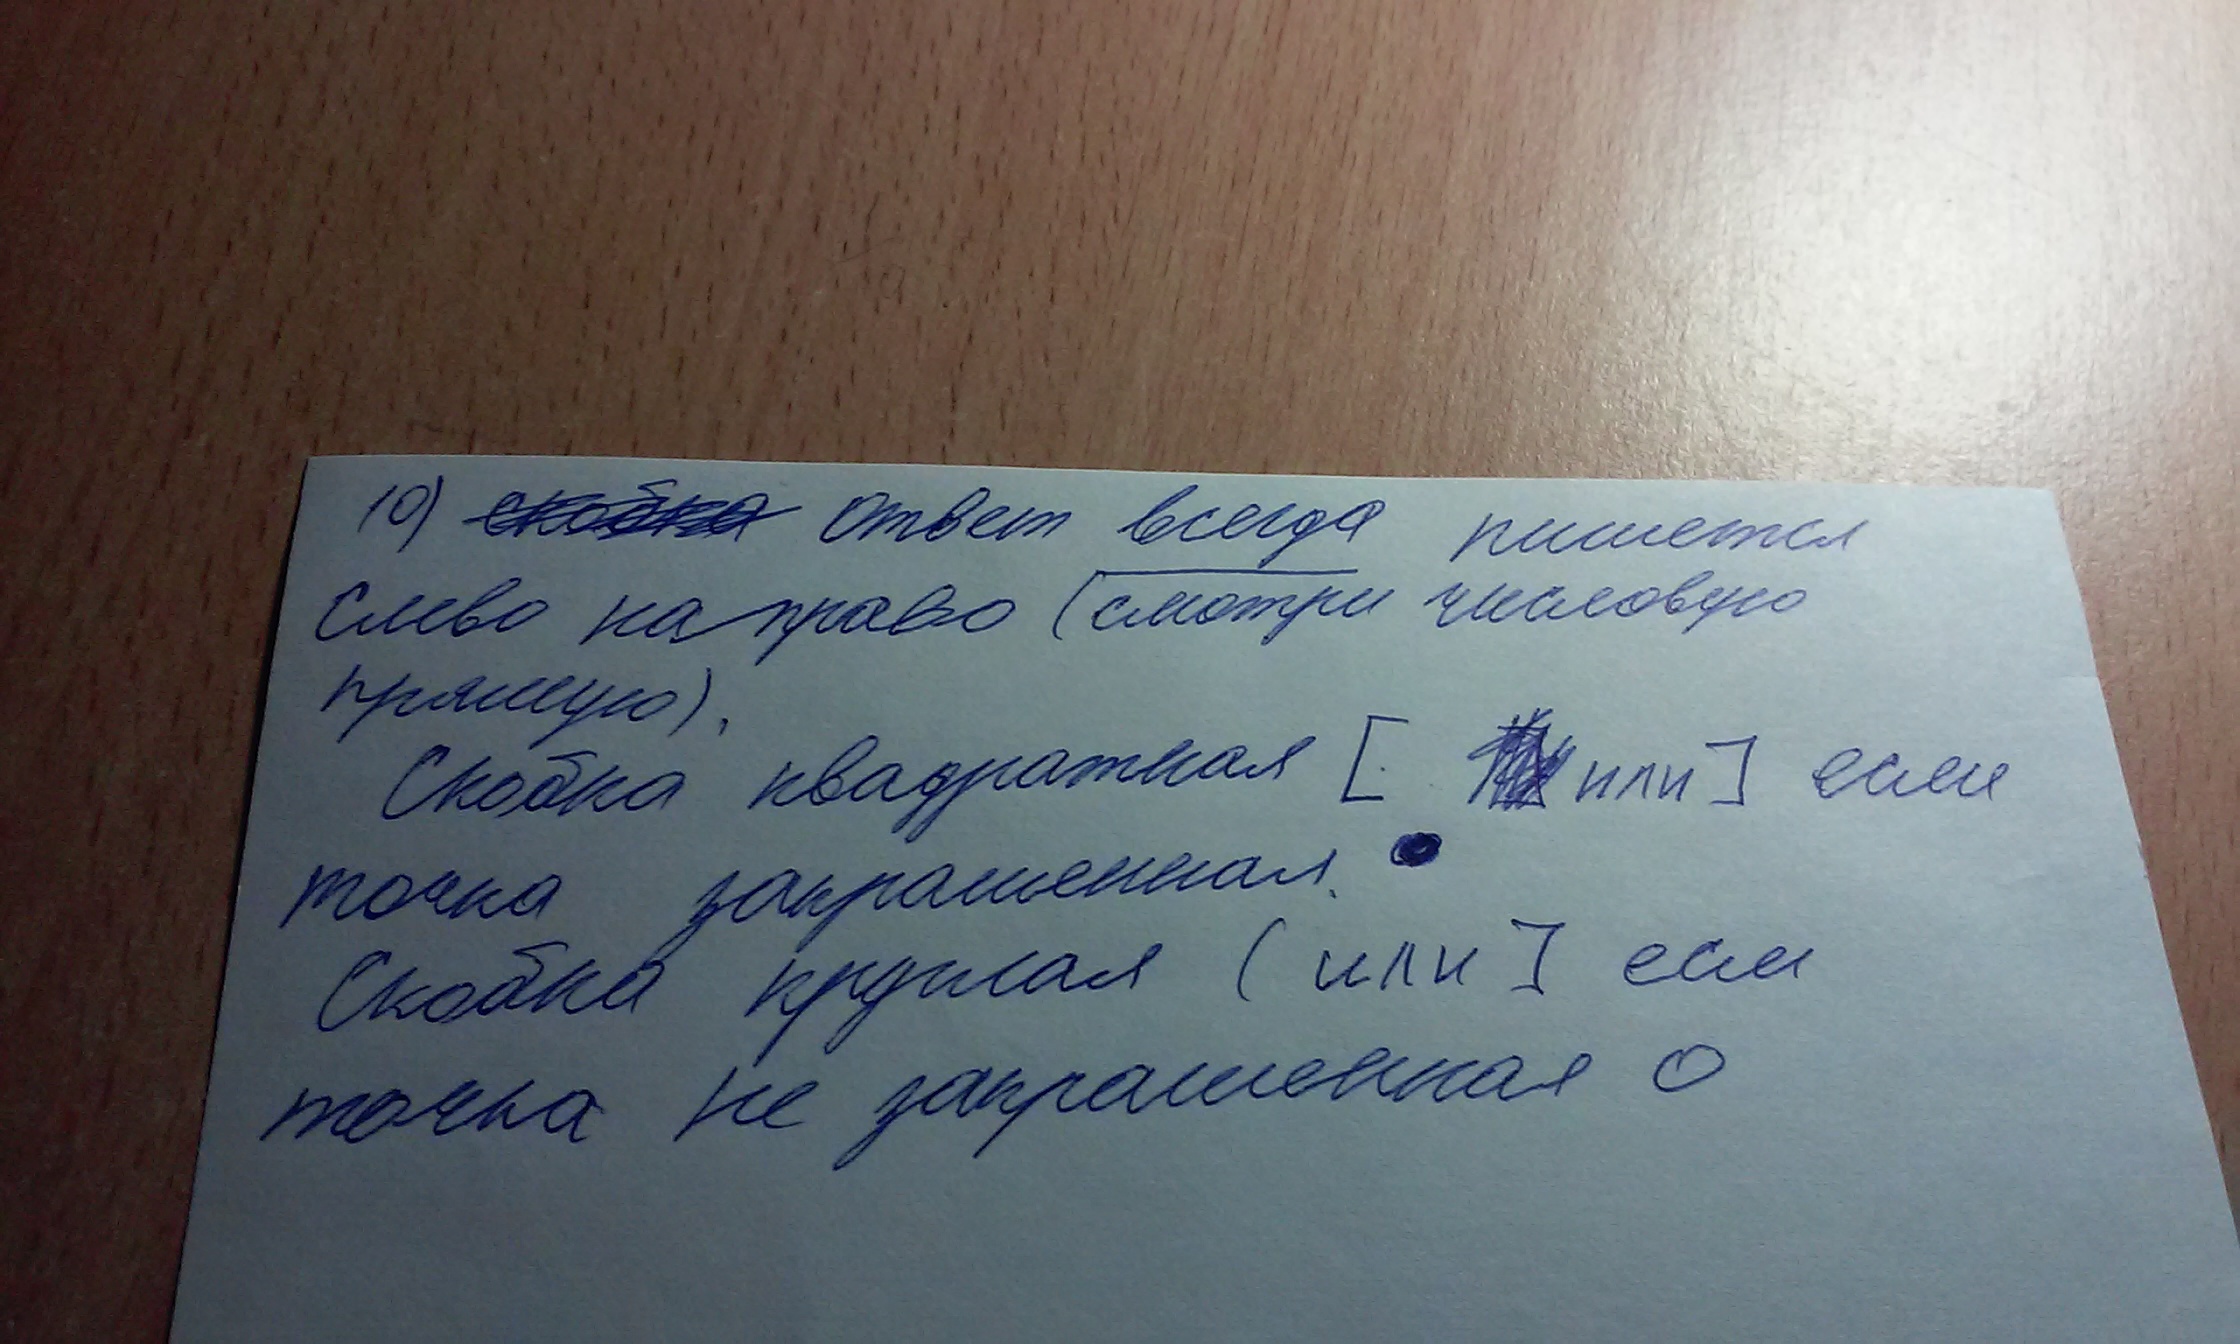 10) скобка ответ всегда пишется
слево на право (смотри числовую
прямую).
Скобка квадратная [ или ] если
точка закрашенная. ●
Скобка круглая ( или ] если
точка не закрашенная О